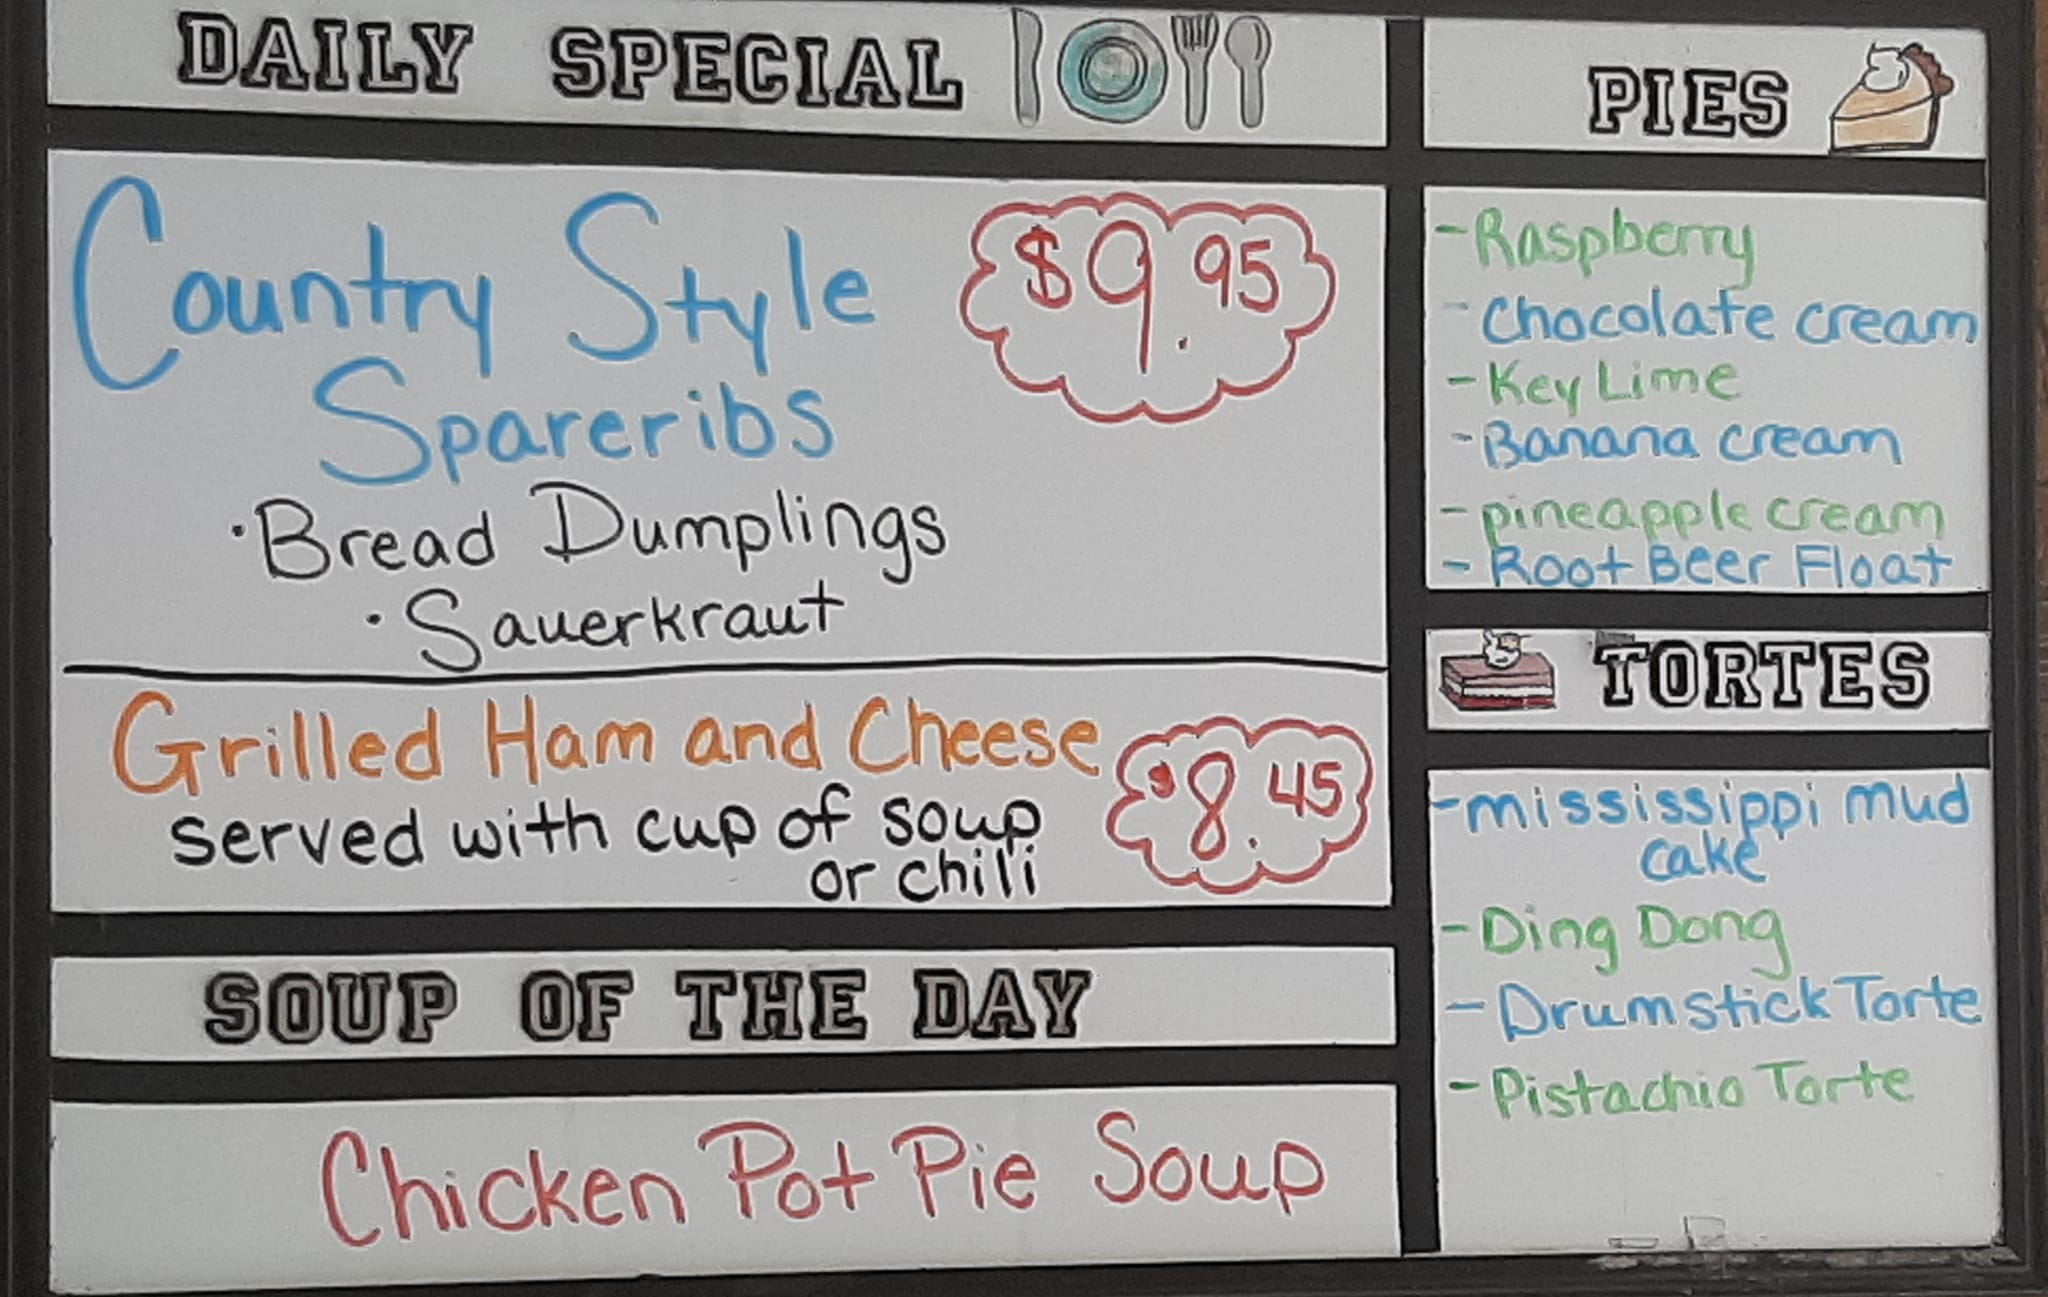 DAILY SPECIAL
Country Style
$9.95
Spareribs
·Bread Dumplings
·Sauerkraut
Grilled Ham and Cheese
$8.45
served with cup of soup
or chili
SOUP OF THE DAY
Chicken Pot Pie Soup
PIES
-Raspberry
-Chocolate cream
-Key Lime
-Banana cream
-pineapple cream
-Root Beer Float
TORTES
-mississippi mud
cake
-Ding Dong
-Drumstick Torte
-Pistachio Torte